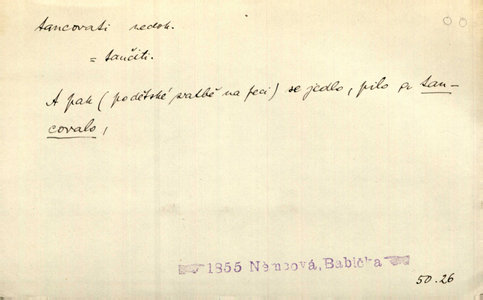 tancovati nedok.
= tančiti.
A pak (po dětské svatbě na peci) se jedlo, pilo a tan-
covalo,
1855 Němcová, Babička
50.26